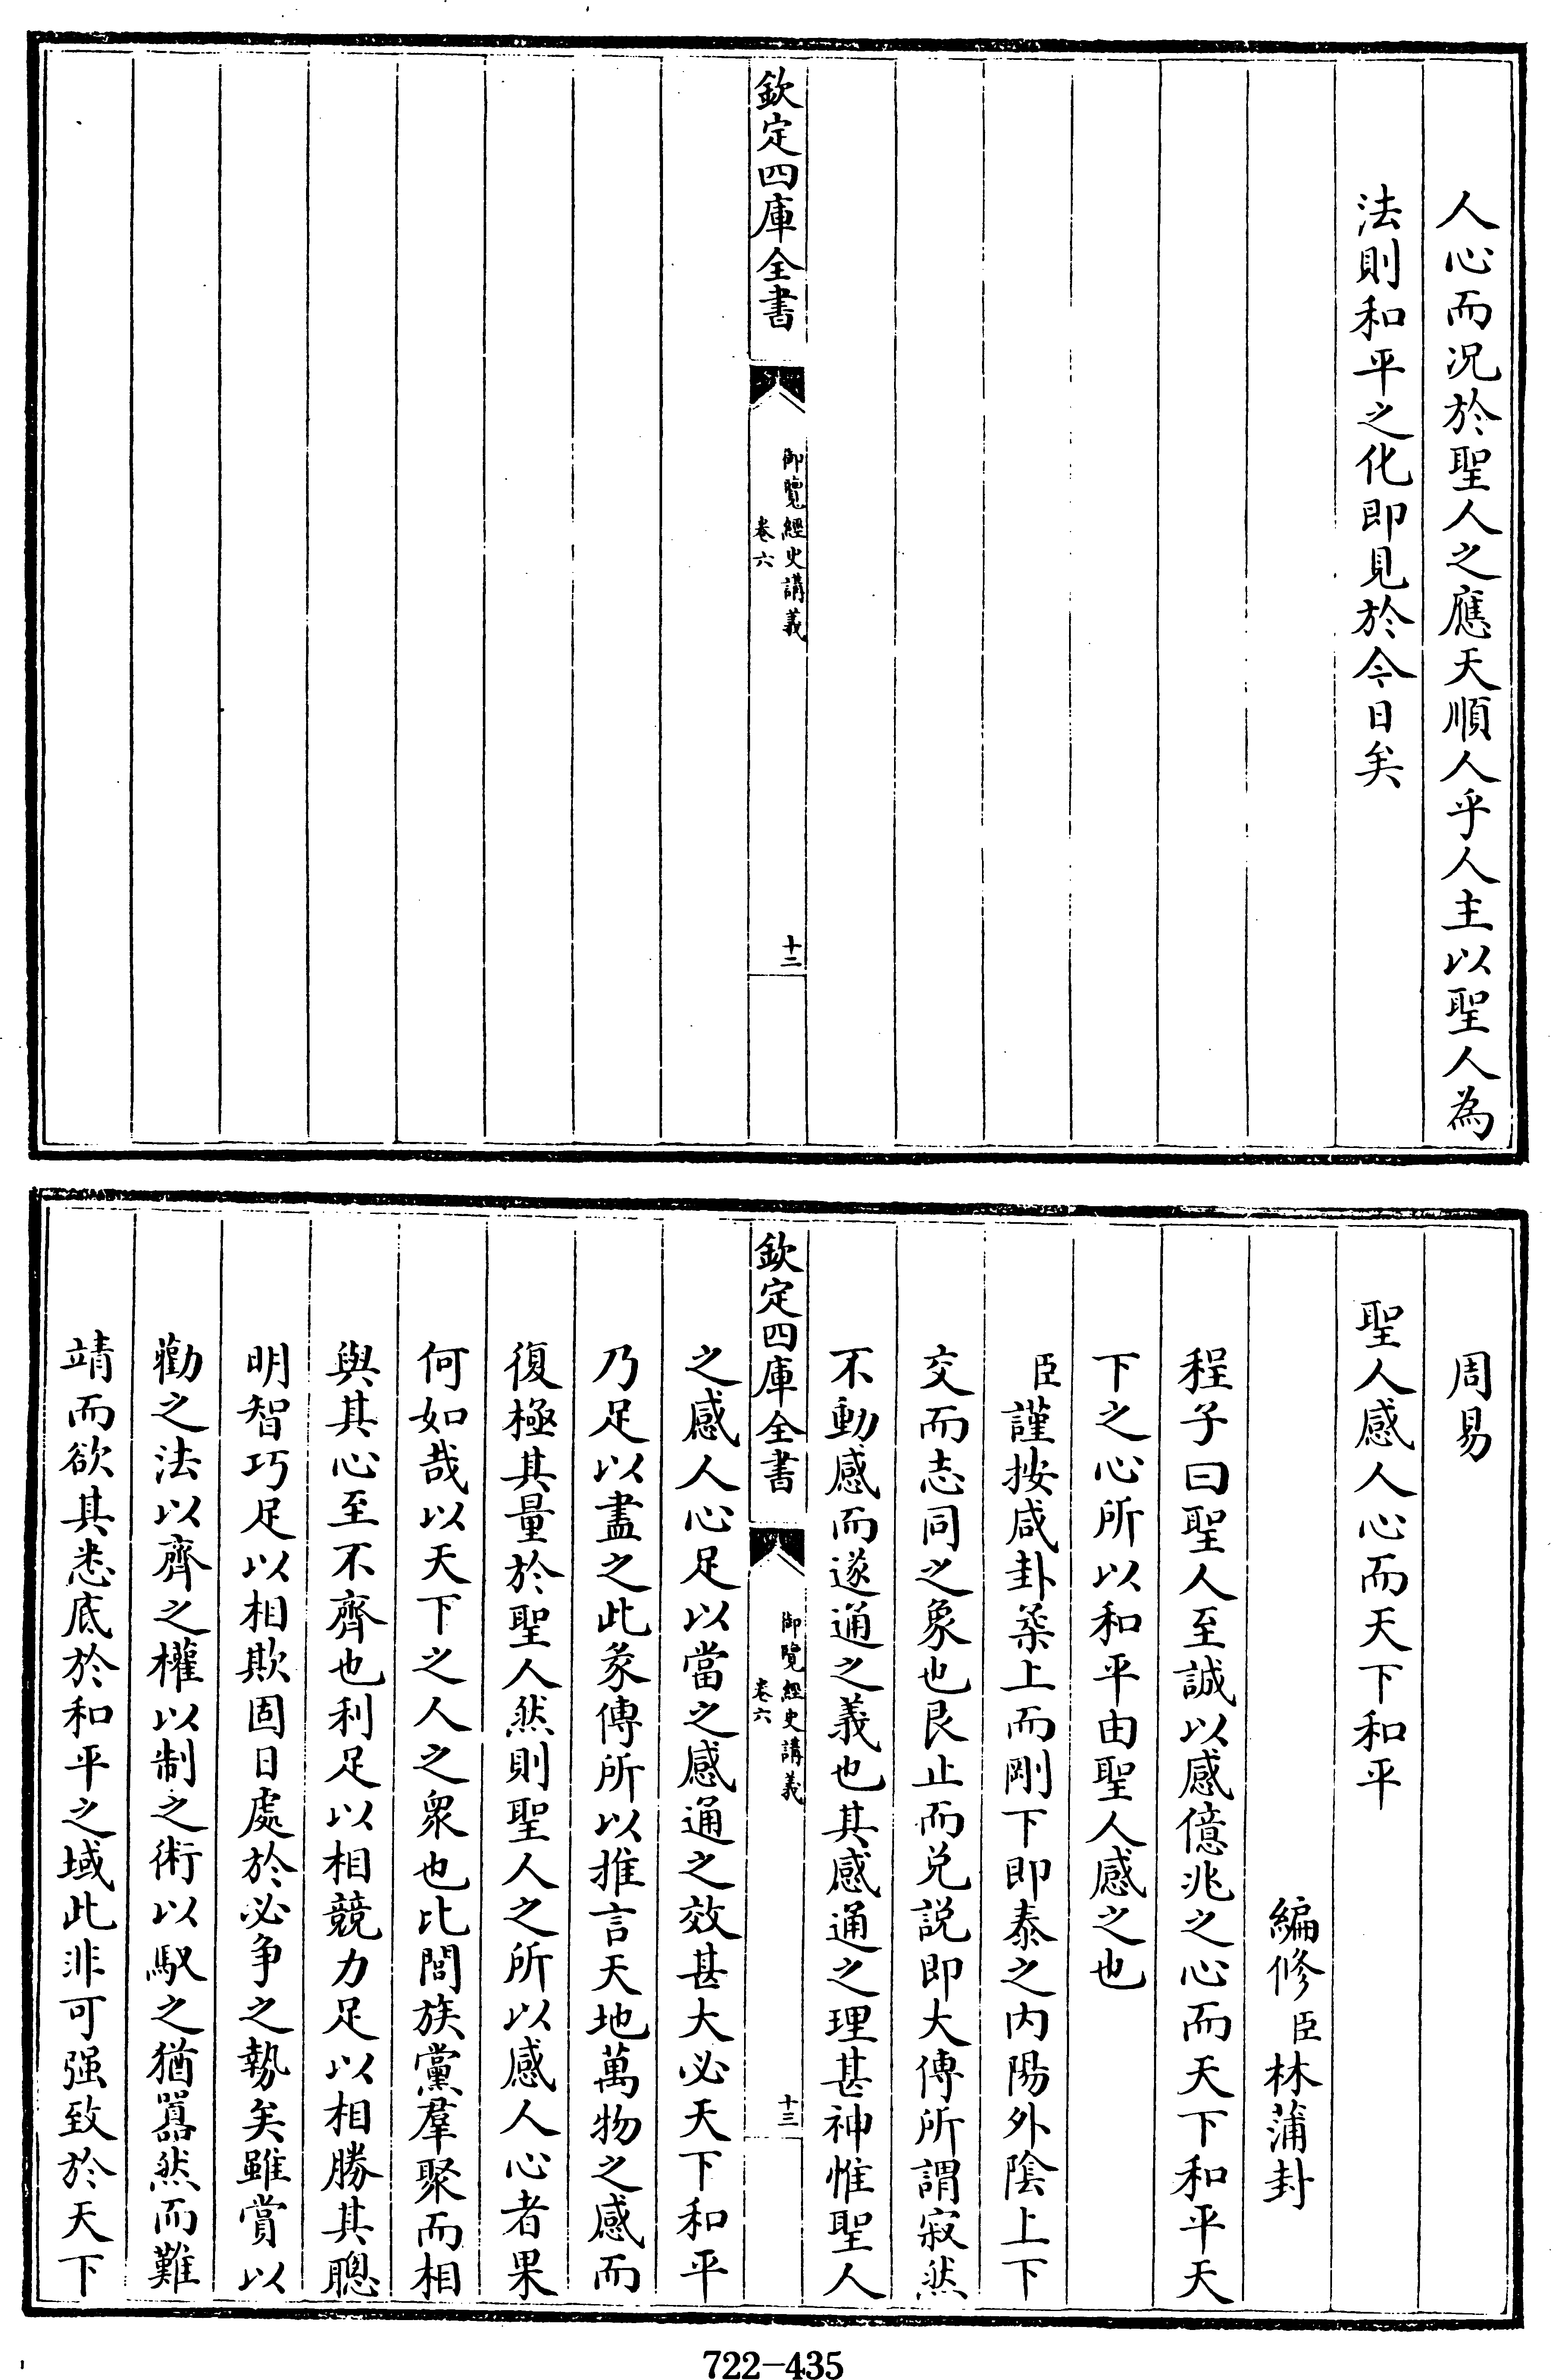 人心而况於聖人之應天順人乎人主以聖人為
法則和平之化即見於今日矣
欽定四庫全書
御覽經史講義
卷六
十二
周易
聖人感人心而天下和平
編修臣林蒲封
程子曰聖人至誠以感億兆之心而天下和平天
下之心所以和平由聖人感之也
臣謹按咸卦柔上而剛下即泰之内陽外陰上下
交而志同之象也艮止而兑説即大傳所謂寂然
不動感而遂通之義也其感通之理甚神惟聖人
欽定四庫全書
御覽經史講義
卷六
十三
之感人心足以當之感通之效甚大必天下和平
乃足以盡之此彖傳所以推言天地萬物之感而
復極其量於聖人然則聖人之所以感人心者果
何如哉以天下之人之衆也比閭族黨羣聚而相
與其心至不齊也利足以相競力足以相勝其聰
明智巧足以相欺固日處於必争之勢矣雖賞以
勸之法以齊之權以制之術以馭之猶囂然而難
靖而欲其悉底於和平之域此非可强致於天下
722-435